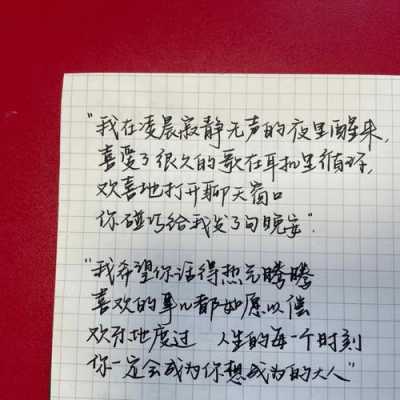 "我在凌晨寂静无声的夜里醒来,
喜爱了很久的歌在耳机里循环,
欢喜地打开聊天窗口
你碰巧给我发了句晚安".
"我希望你活得热气腾腾
喜欢的事儿都如愿以偿
欢乐地度过 人生的每一个时刻
你一定会成为你想成为的大人"